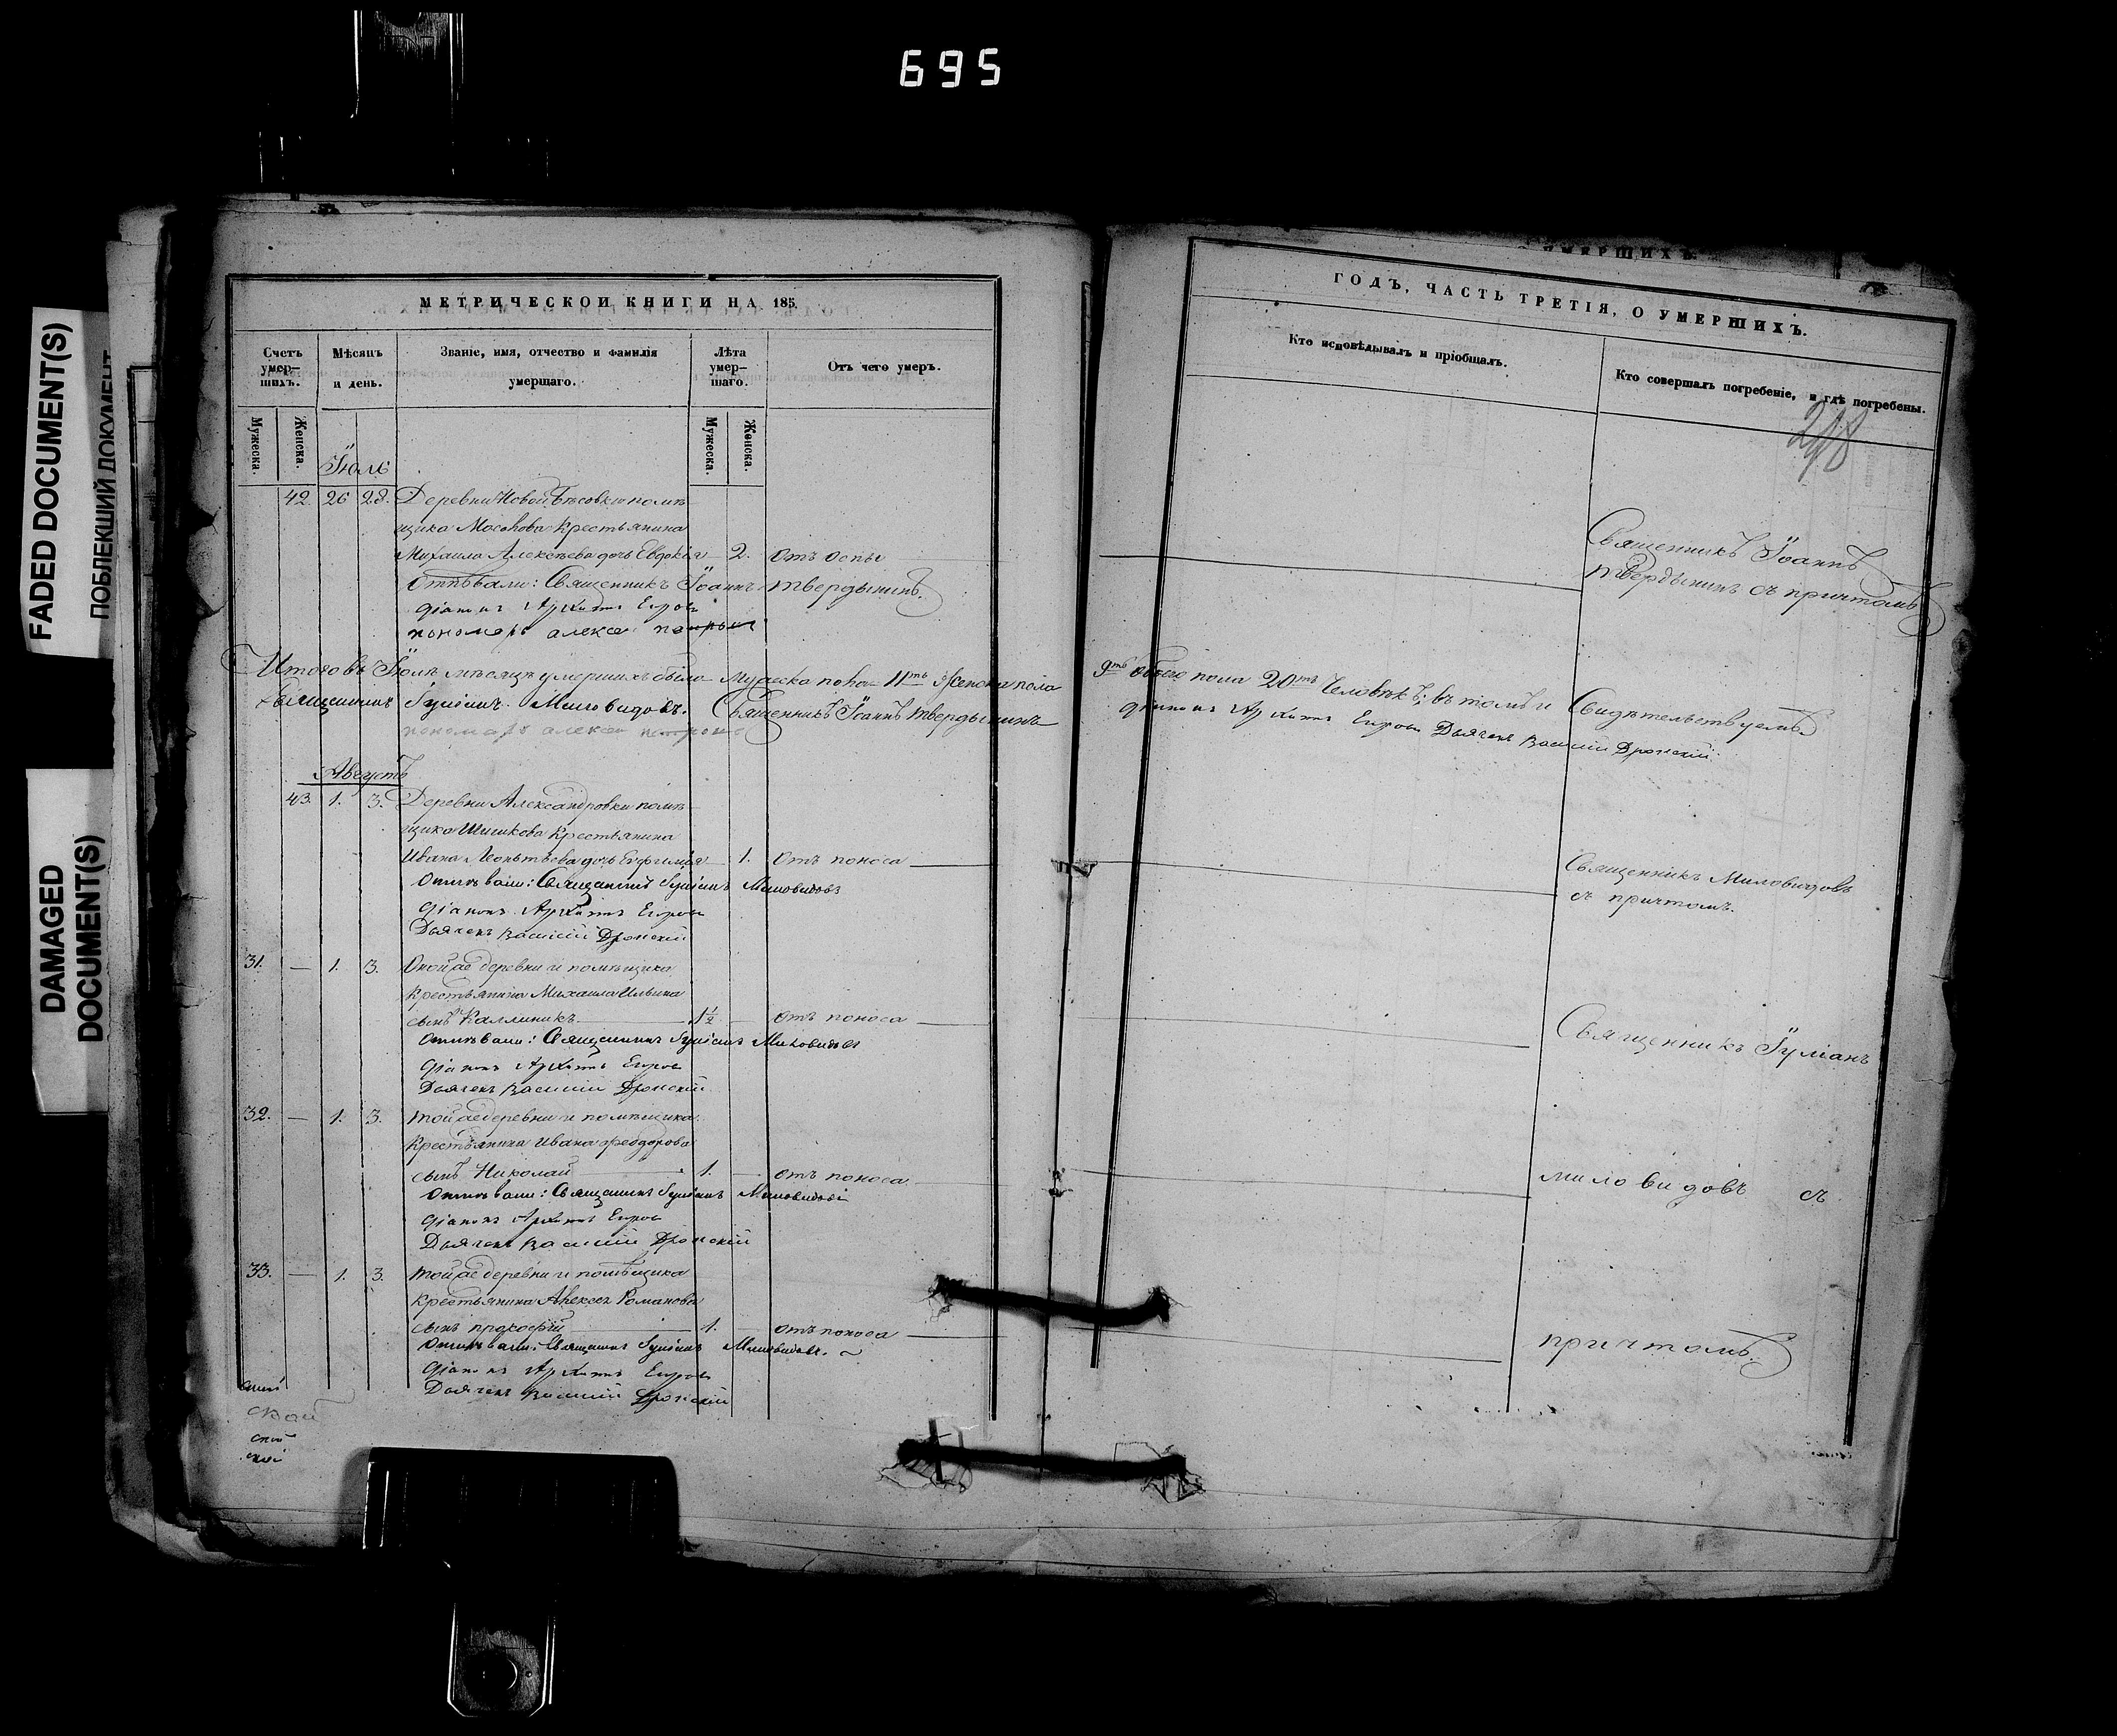 695
FADED DOCUMENT(S)
ПОБЛЕКШИЙ ДОКУМЕНТ
DAMAGED
DOCUMENT(S)
МЕТРИЧЕСКОЙ КНИГИ НА 185
Счетъ умер-шихъ.
Мѣсяцъ и день.
Званіе, имя, отчество и фамилія умершаго.
Лѣта умер-шаго.
Отъ чего умеръ.
Мужеска.
Женска.
Мужеска.
Женска.
Іюль
42. 26 28. Деревни Новой Бѣсовки помѣ
щика Мосолова Крестьянина
Михаила Алексѣева дочь Евдокія 2. отъ оспы
Отпѣвали: Священникъ Іоаннъ Твердынинъ
діаконъ Архипъ Егоровъ
пономарь алексей
Итого въ Іюлѣ мѣсяцѣ умершихъ было Мужеска пола 11ть Женска пола
Священникъ Іуліанъ Миловидовъ. Священникъ Іоаннъ Твердынинъ
пономарь алексей
Августъ
43. 1. 3. Деревни Александровки помѣ
щика Шишкова Крестьянина
Ивана Леонтьева дочь Евфимія 1. отъ поноса
Отпѣвали: Священникъ Іуліанъ Миловидовъ
діаконъ Архипъ Егоровъ
Дьячекъ Василій Дронскій
31. — 1. 3. Оной же деревни и помѣщика
Крестьянина Михаила Ильина
сынъ Каллиникъ 1½ — отъ поноса
Отпѣвали: Священникъ Іуліанъ Миловидовъ
діаконъ Архипъ Егоровъ
Дьячекъ Василій Дронскій
32. — 1. 3. Той же деревни и помѣщика
Крестьянина Ивана Феодорова
сынъ Николай 1. — отъ поноса
Отпѣвали: Священникъ Іуліанъ Миловидовъ
діаконъ Архипъ Егоровъ
Дьячекъ Василій Дронскій
33. — 1. 3. Той же деревни и помѣщика
Крестьянина Алексея Романова
сынъ прокофій 1. — отъ поноса
Отпѣвали: Священникъ Іуліанъ Миловидовъ.
діаконъ Архипъ Егоровъ
Дьячекъ Василій Дронскій
УМЕРШИХЪ
ГОДЪ, ЧАСТЬ ТРЕТІЯ, О УМЕРШИХЪ.
Кто исповѣдывалъ и пріобщалъ.
Кто совершалъ погребеніе, и гдѣ погребены.
298
Священникъ Іоаннъ
Твердынинъ съ причтомъ
9ть обоего пола 20ть Человѣкъ; въ томъ и Свидѣтельствуемъ
діаконъ Архипъ Егоровъ Дьячекъ Василій Дронскій
Священникъ Миловидовъ
съ причтомъ.
Священникъ Іуліанъ
миловидовъ съ
причтомъ